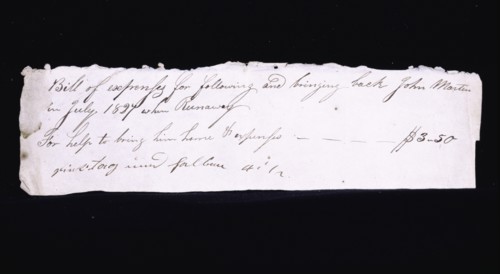 Bill of expenses for following and bringing back John Martin
in July 1837 when Runaway
For help to bring him home & expenses - - - - $3-50